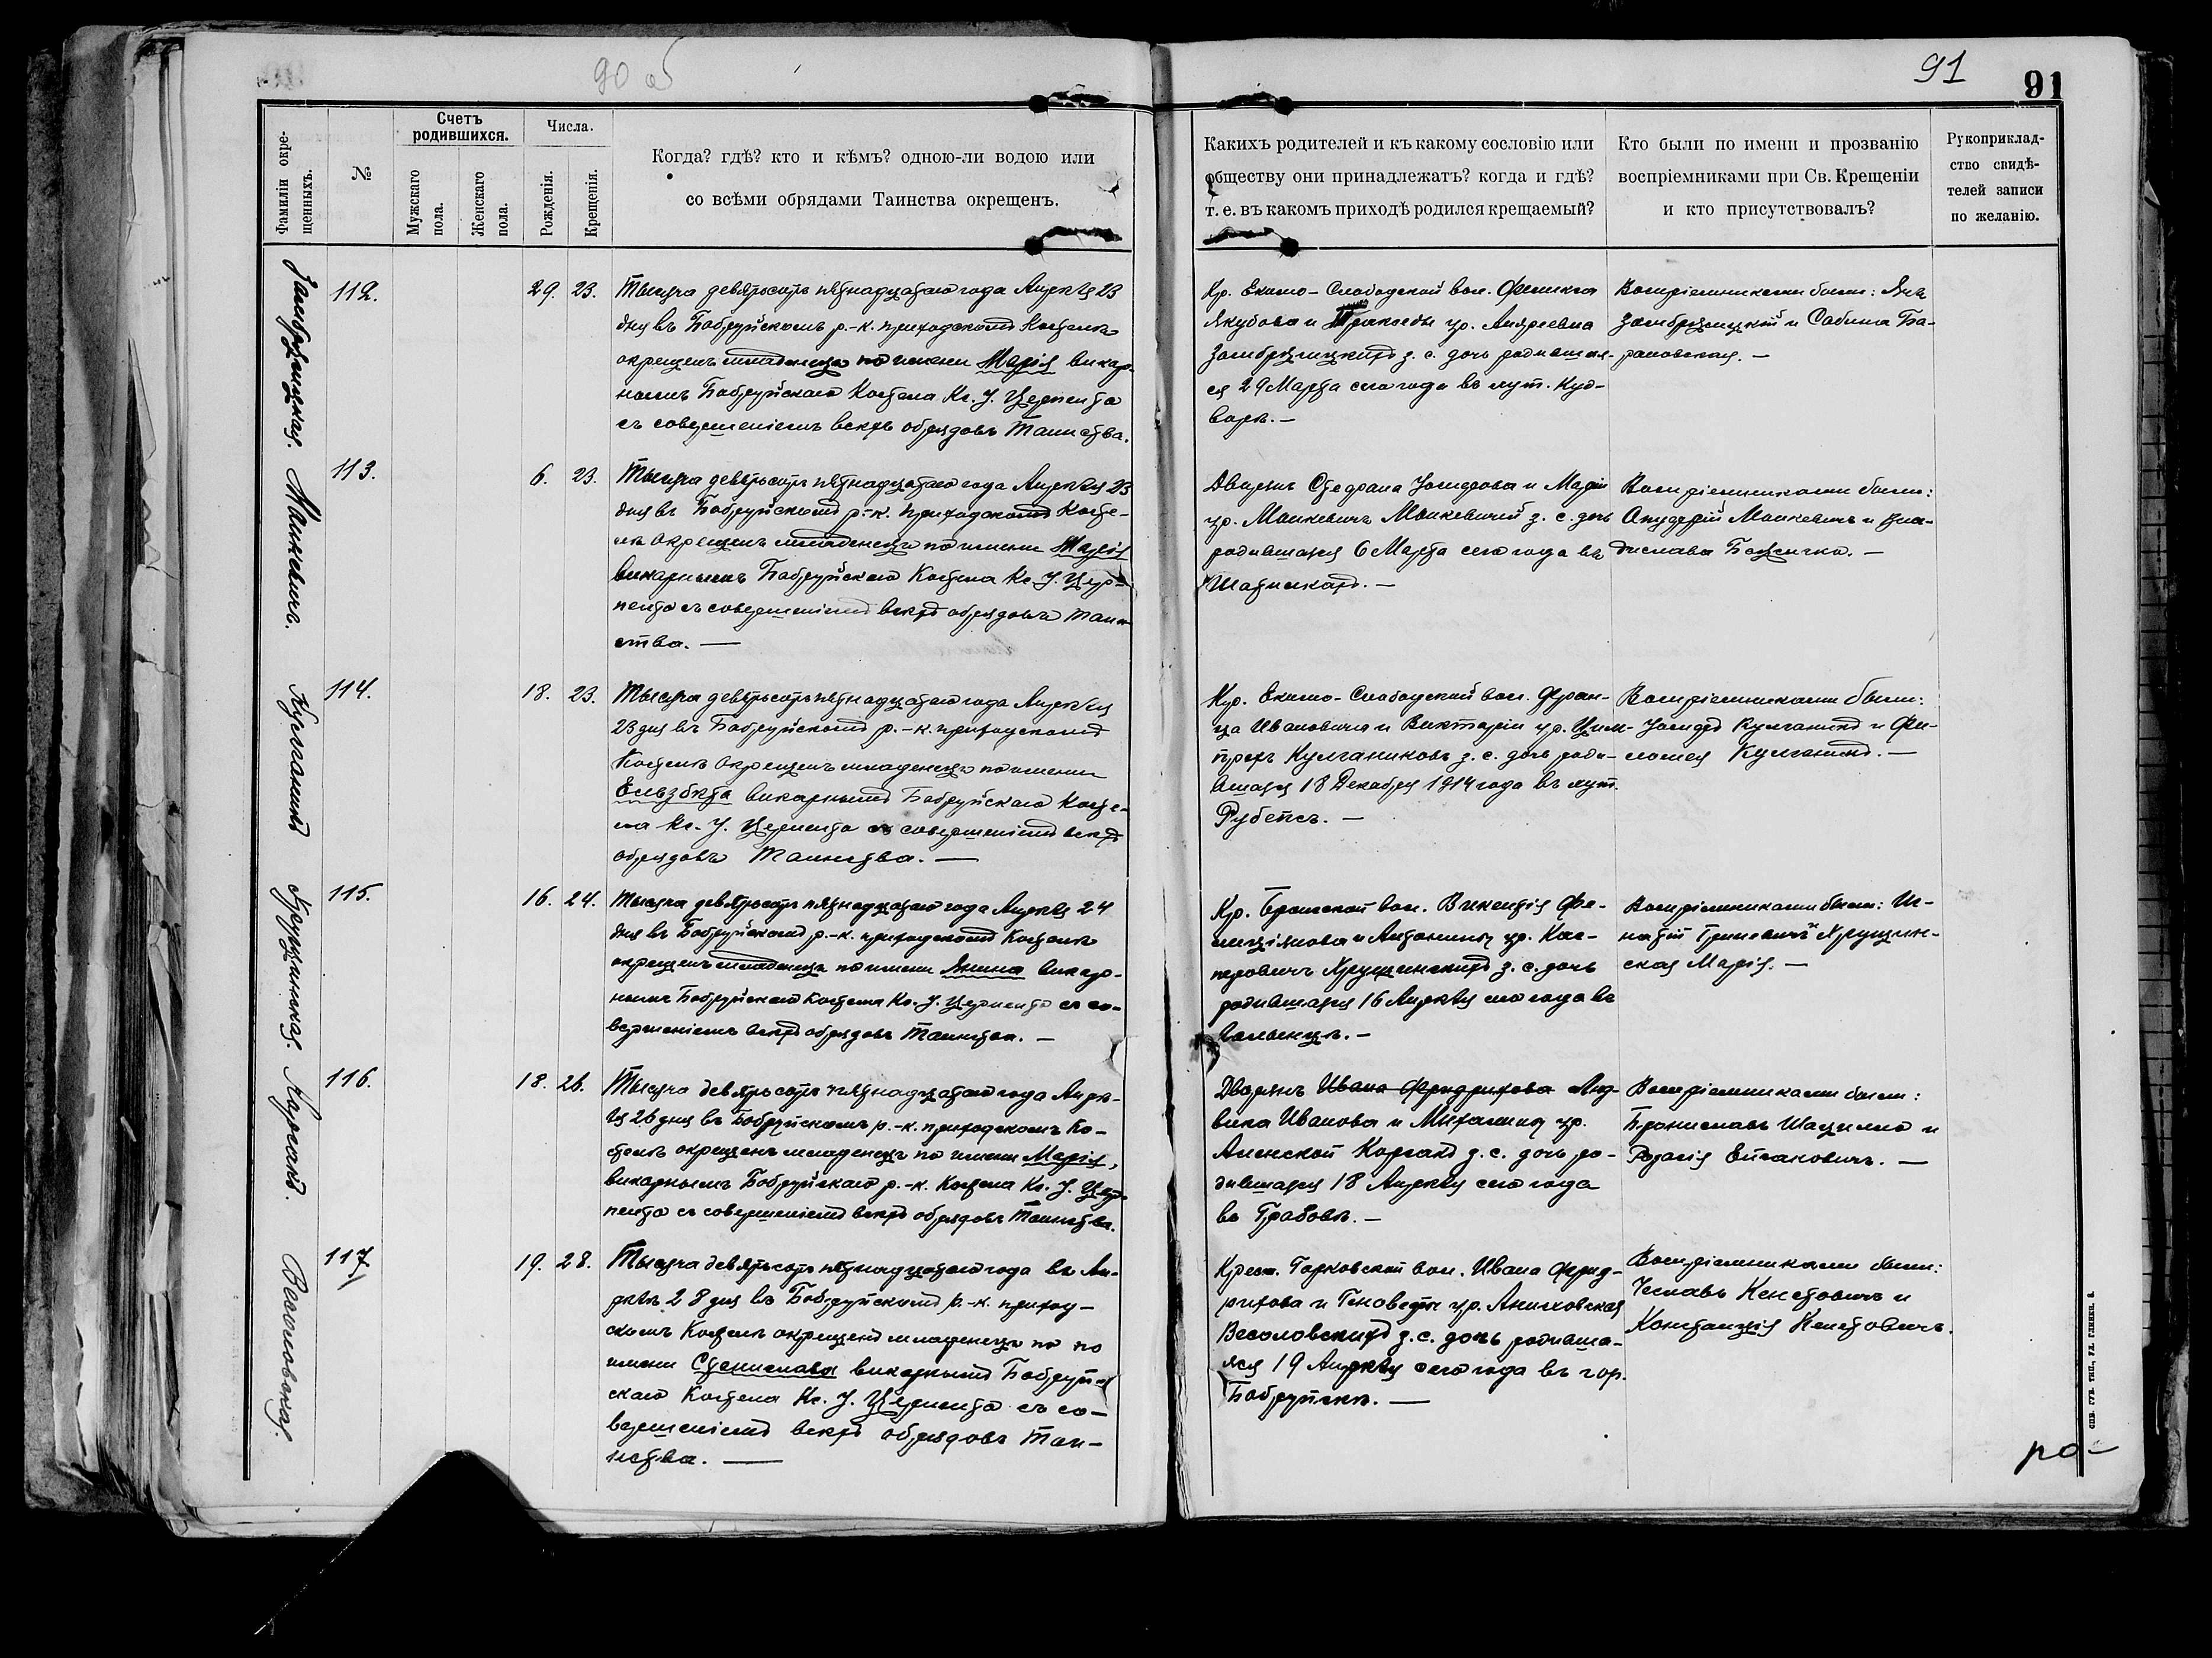 90 об
91
91
Фамиліи окре-
щенныхъ.
№
Счетъ
родившихся.
Мужскаго
пола.
Женскаго
пола.
Числа.
Рожденія.
Крещенія.
Когда? гдѣ? кто и кѣмъ? одною-ли водою или
со всѣми обрядами Таинства окрещенъ.
Какихъ родителей и къ какому сословію или
обществу они принадлежатъ? когда и гдѣ?
т. е. въ какомъ приходѣ родился крещаемый?
Кто были по имени и прозванію
воспріемниками при Св. Крещеніи
и кто присутствовалъ?
Рукоприклад-
ство свидѣ-
телей записи
по желанію.
112.
29. 23.
Тысяча девятьсотъ пятнадцатаго года Апрѣля 23
дня въ Бобруйскомъ р.-к. приходскомъ Костелѣ
окрещенъ младенецъ по имени Марія викар-
нымъ Бобруйскаго Костела Кс. І. Церпента
съ совершеніемъ всѣхъ обрядовъ Таинства.
Кр. Екимо-Слободской вол. Феликса
Якубова и Пракседы ур. Андреевна
з. с. дочь родившая-
ся 29 Марта сего года въ
Воспріемниками были: Янъ
и Сабина Ба-
рановская. —
Манкевичъ.
113.
6. 23.
Тысяча девятьсотъ пятнадцатаго года Апрѣля 23
дня въ Бобруйскомъ р.-к. приходскомъ Косте-
лѣ окрещенъ младенецъ по имени Марія
викарнымъ Бобруйскаго Костела Кс. І. Цер-
пента съ совершеніемъ всѣхъ обрядовъ Таин-
ства. —
Дворянъ Стефана Іосифова и Маріи
ур. Манкевичъ Манкевичей з. с. дочь
родившаяся 6 Марта сего года въ
Шатилкахъ. —
Воспріемниками были:
Онуфрій Манкевичъ и Вла-
дислава —
Кулганикъ
114.
18. 23.
Тысяча девятьсотъ пятнадцатаго года Апрѣля
23 дня въ Бобруйскомъ р.-к. приходскомъ
Костелѣ окрещенъ младенецъ по имени
Ельзбѣта викарнымъ Бобруйскаго Косте-
ла Кс. І. Церпента съ совершеніемъ всѣхъ
обрядовъ Таинства. —
Кр. Екимо-Слободской вол. Фран-
ца Ивановича и Викторіи ур.
Кулганиковъ з. с. дочь роди-
вшаяся 18 Декабря 1914 года въ
Рубежъ. —
Воспріемниками были:
Іосифъ Кулганикъ и Фи-
ломея Кулганикъ. —
Хрущинская.
115.
16. 24.
Тысяча девятьсотъ пятнадцатаго года Апрѣля 24
дня въ Бобруйскомъ р.-к. приходскомъ Костелѣ
окрещенъ младенецъ по имени Янина викар-
нымъ Бобруйскаго Костела Кс. І. Церпента съ со-
вершеніемъ всѣхъ обрядовъ Таинства. —
Кр. Брожской вол. Викентія Фе-
лиціянова и Антонины ур. Кас-
перовичъ Хрущинскихъ з. с. дочь
родившаяся 16 Апрѣля сего года въ
Воспріемниками были: Иг-
натій Гриневичъ и Хрущин-
ская Марія. —
Корсакъ.
116.
18. 26.
Тысяча девятьсотъ пятнадцатаго года Апрѣ-
ля 26 дня въ Бобруйскомъ р.-к. приходскомъ Ко-
стелѣ окрещенъ младенецъ по имени Марія,
викарнымъ Бобруйскаго р.-к. Костела Кс. І. Цер-
пента съ совершеніемъ всѣхъ обрядовъ Таинства.
Дворянъ Ивана Фридрихова Люд-
вика Иванова и Михалины ур.
Корсакъ з. с. дочь ро-
дившаяся 18 Апрѣля сего года
въ Грабовѣ. —
Воспріемниками были:
Брониславъ Шацилло и
Розалія —
Весоловская.
117.
19. 28.
Тысяча девятьсотъ пятнадцатаго года въ Ап-
рѣлѣ 28 дня въ Бобруйскомъ р.-к. приход-
скомъ Костелѣ окрещенъ младенецъ по по
имени Станислава викарнымъ Бобруй-
скаго Костела Кс. І. Церпента съ со-
вершеніемъ всѣхъ обрядовъ Таи-
нства. —
Крест. Горковской вол. Ивана Фрид-
рихова и Геновефы ур.
Весоловскихъ з. с. дочь родивша-
яся 19 Апрѣля сего года въ гор.
Бобруйскѣ. —
Воспріемниками были:
Чеславъ и
Констанція